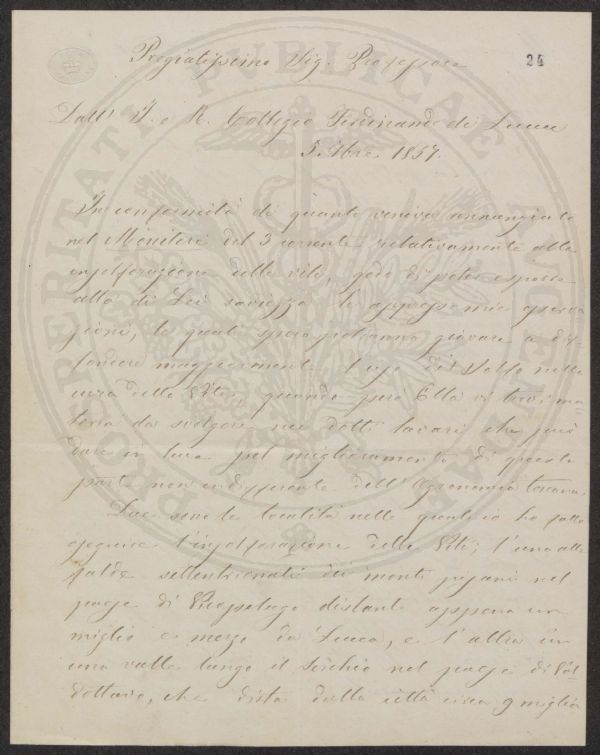 Pregiatissimo Sig. Professore
24
Dall' I. e R. Collegio Ferdinando di Lucca
5 Xbre 1857.
In conformità di quanto veniva annunziato
nel Monitore del 3 corrente relativamente alla
insolforazione delle viti, godo di poter esporre
alla di Lei saviezza le appresso mie osserva
zioni, le quali spero potranno giovare a dif-
fondere maggiormente l'uso del Solfo nella
cura delle Viti, quando però Ella vi trovi ma
teria da svolgere nei dotti lavori che può
dare in luce pel miglioramento di questa
parte non indifferente dell' Agronomia toscana.
Due sono le località nelle quali io ho fatto
eseguire l'insolforazione delle Viti; l'una alle
falde settentrionali dei monti pisani nel
paese di Vicopelago distante appena un
miglio e mezzo da Lucca, e l'altra in
una valle lungo il Serchio nel paese di Val
dottavo, che dista dalla città circa 9 miglia
PROSPERITATI PUBLICAE AUGENDAE